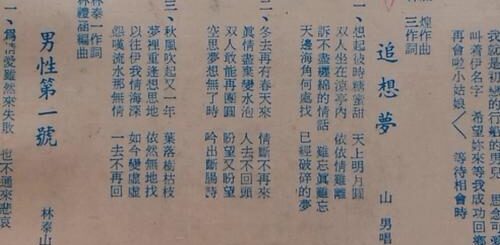 我就是
戀的行
兒 思念可愛
叫着伊名字 希望妳來等我成功回鄉
再會啦小姑娘 等待相會時
煌作曲
三作詞
追想夢 山 男唱
一、想起彼時糖蜜甜 天上明月圓
双人坐在涼亭內 依依情難離
訴不盡纒綿的情話 難忘眞難忘
天邊海角何處找 已經破碎的夢
二、冬去再有春天來 情斷不再來
眞情盡棄變水泡 人去不回頭
双人敢能再團圓 盼望又盼望
空思夢想無了時 吟出斷腸詩
三、秋風吹起又一年 葉落樹枯枝
夢裡重逢想思地 依然無地找
以往伊我情海深 如今變虛虛
怨嘆流水那無情 一去不再回
林泰一作詞
林禮涵編曲
男性第一號 林泰山
一、爲情愛雖然來失敗 也不通來悲哀